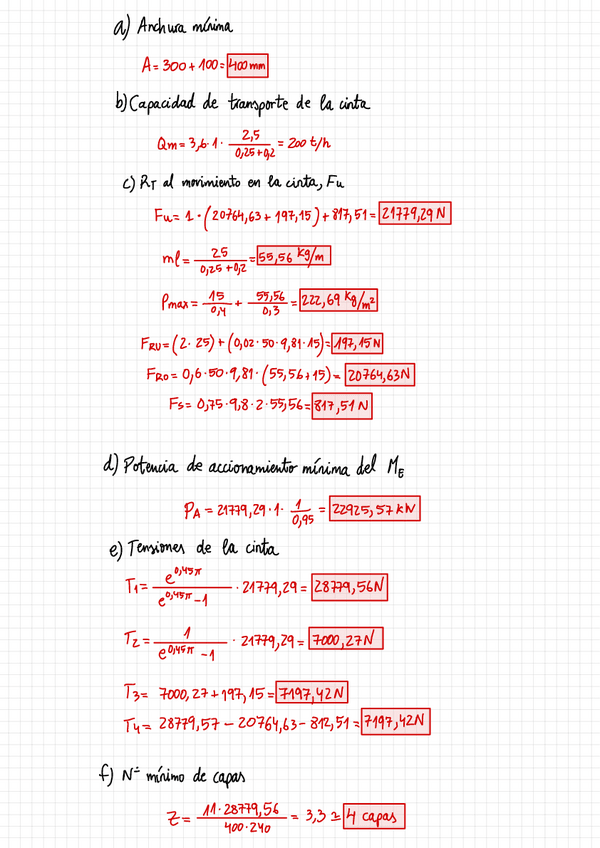 a) Anchura mínima
A = 300 + 100 = 400 mm
b) Capacidad de transporte de la cinta
Qm = 3,6 · 1 · 2,5 / (0,25 + 0,2) = 200 t/h
c) RT al movimiento en la cinta, Fu
Fu = 1 · (20764,63 + 197,15) + 817,51 = 21779,29 N
ml = 25 / (0,25 + 0,2) = 55,56 kg/m
Pmax = 15 / 0,4 + 55,56 / 0,3 = 222,69 kg/m²
FRU = (2 · 25) + (0,02 · 50 · 9,81 · 15) = 197,15 N
FRO = 0,6 · 50 · 9,81 · (55,56 + 15) = 20764,63 N
Fs = 0,75 · 9,8 · 2 · 55,56 = 817,51 N
d) Potencia de accionamiento mínima del ME
PA = 21779,29 · 1 · 1 / 0,95 = 22925,57 kW
e) Tensiones de la cinta
T1 = e^0,45π / (e^0,45π - 1) · 21779,29 = 28779,56 N
T2 = 1 / (e^0,45π - 1) · 21779,29 = 7000,27 N
T3 = 7000,27 + 197,15 = 7197,42 N
T4 = 28779,57 - 20764,63 - 812,51 = 7197,42 N
f) Nº mínimo de capas
Z = 11 · 28779,56 / 400 · 240 = 3,3 ≃ 4 capas